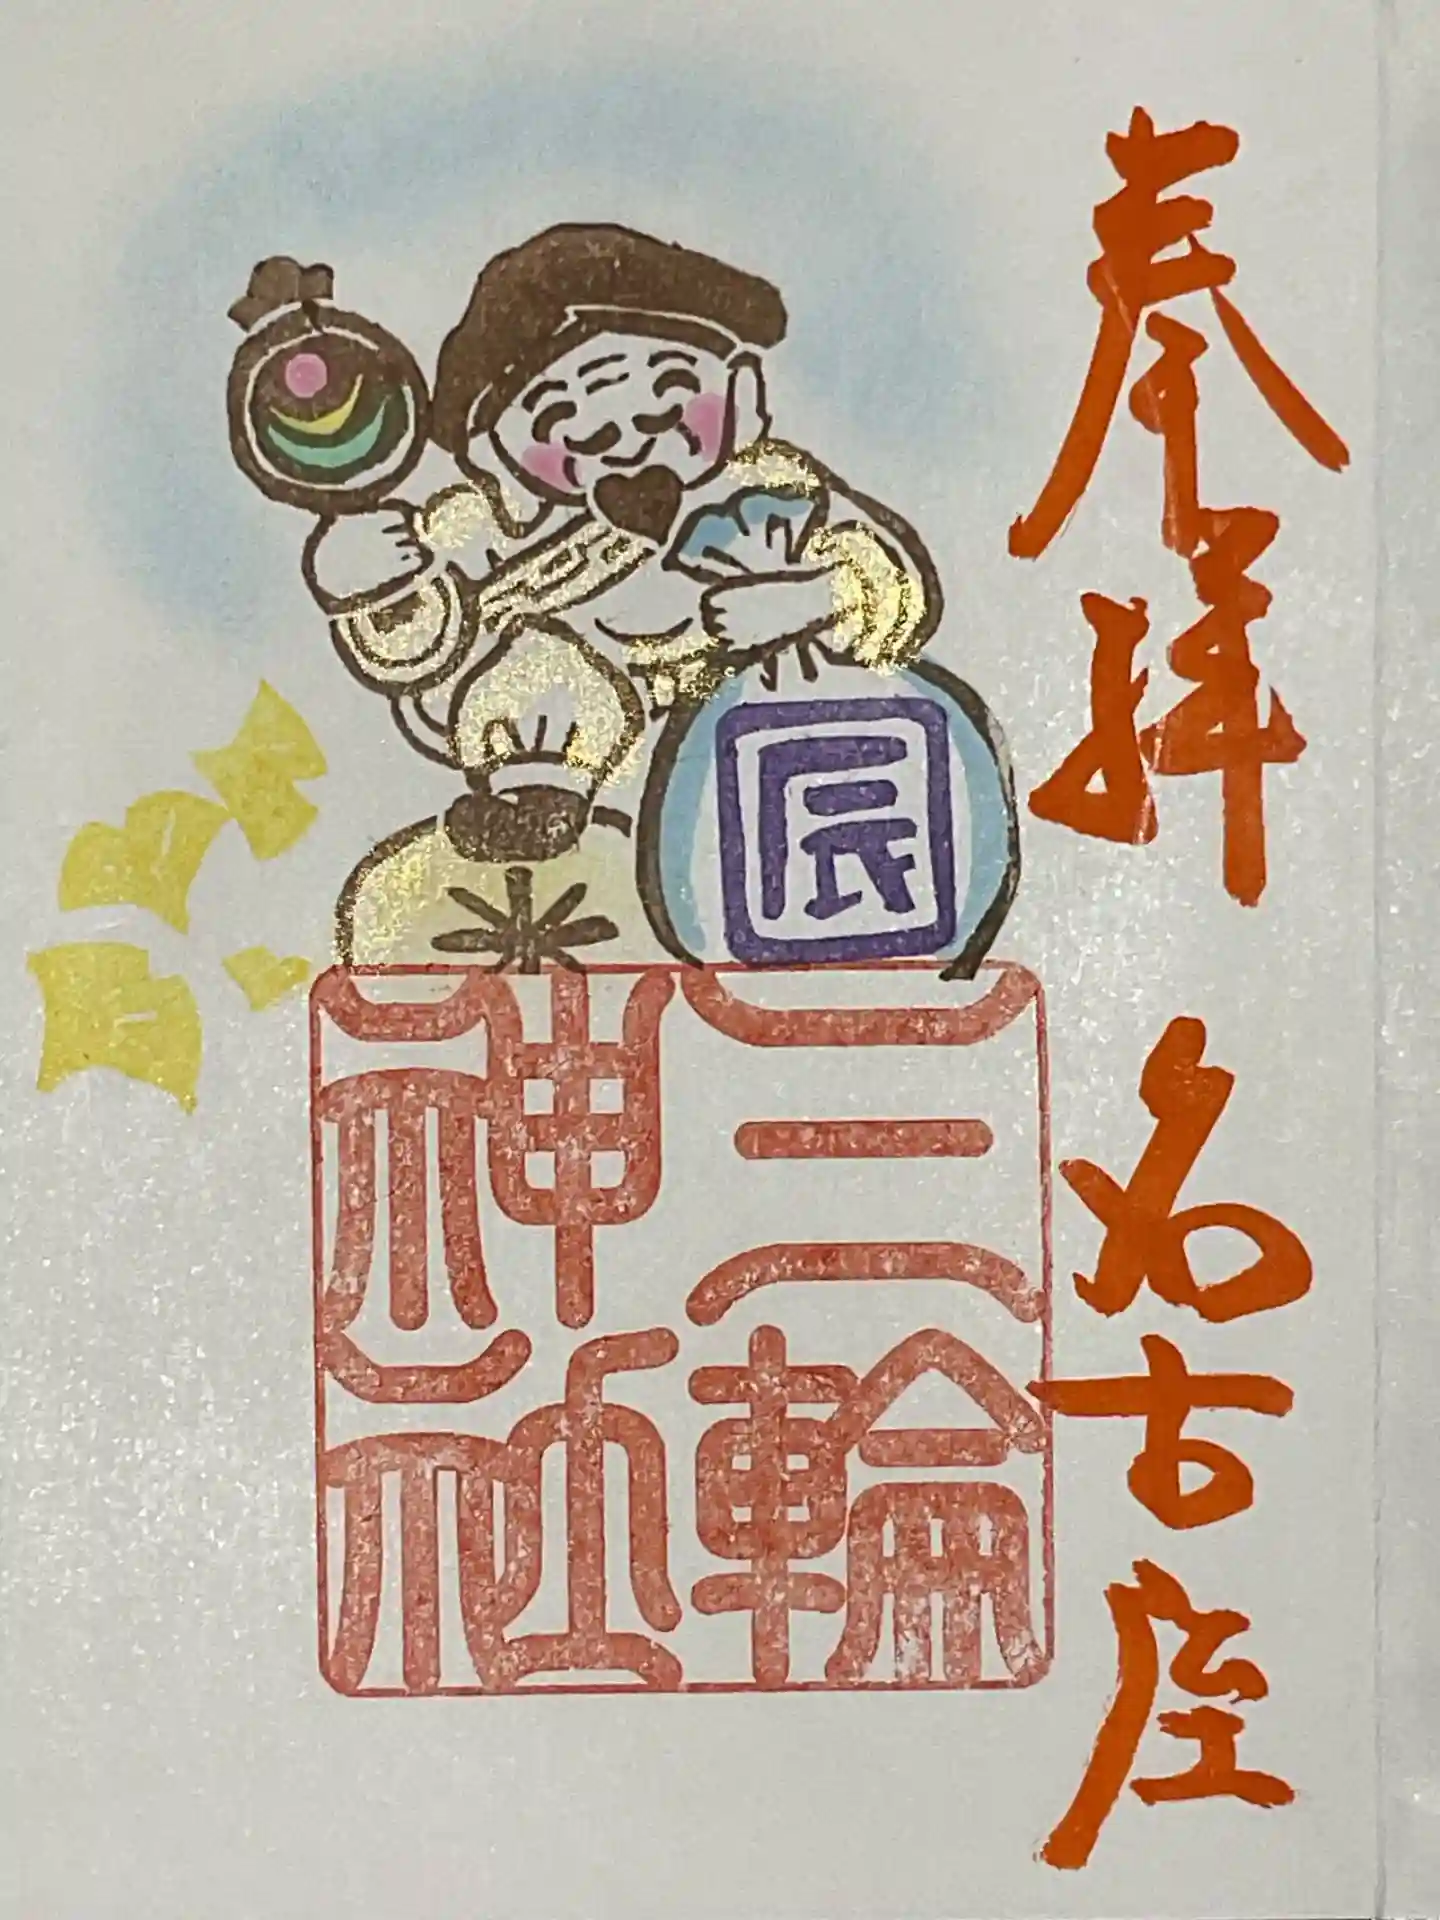 奉拝 名古屋
辰
三輪
神社